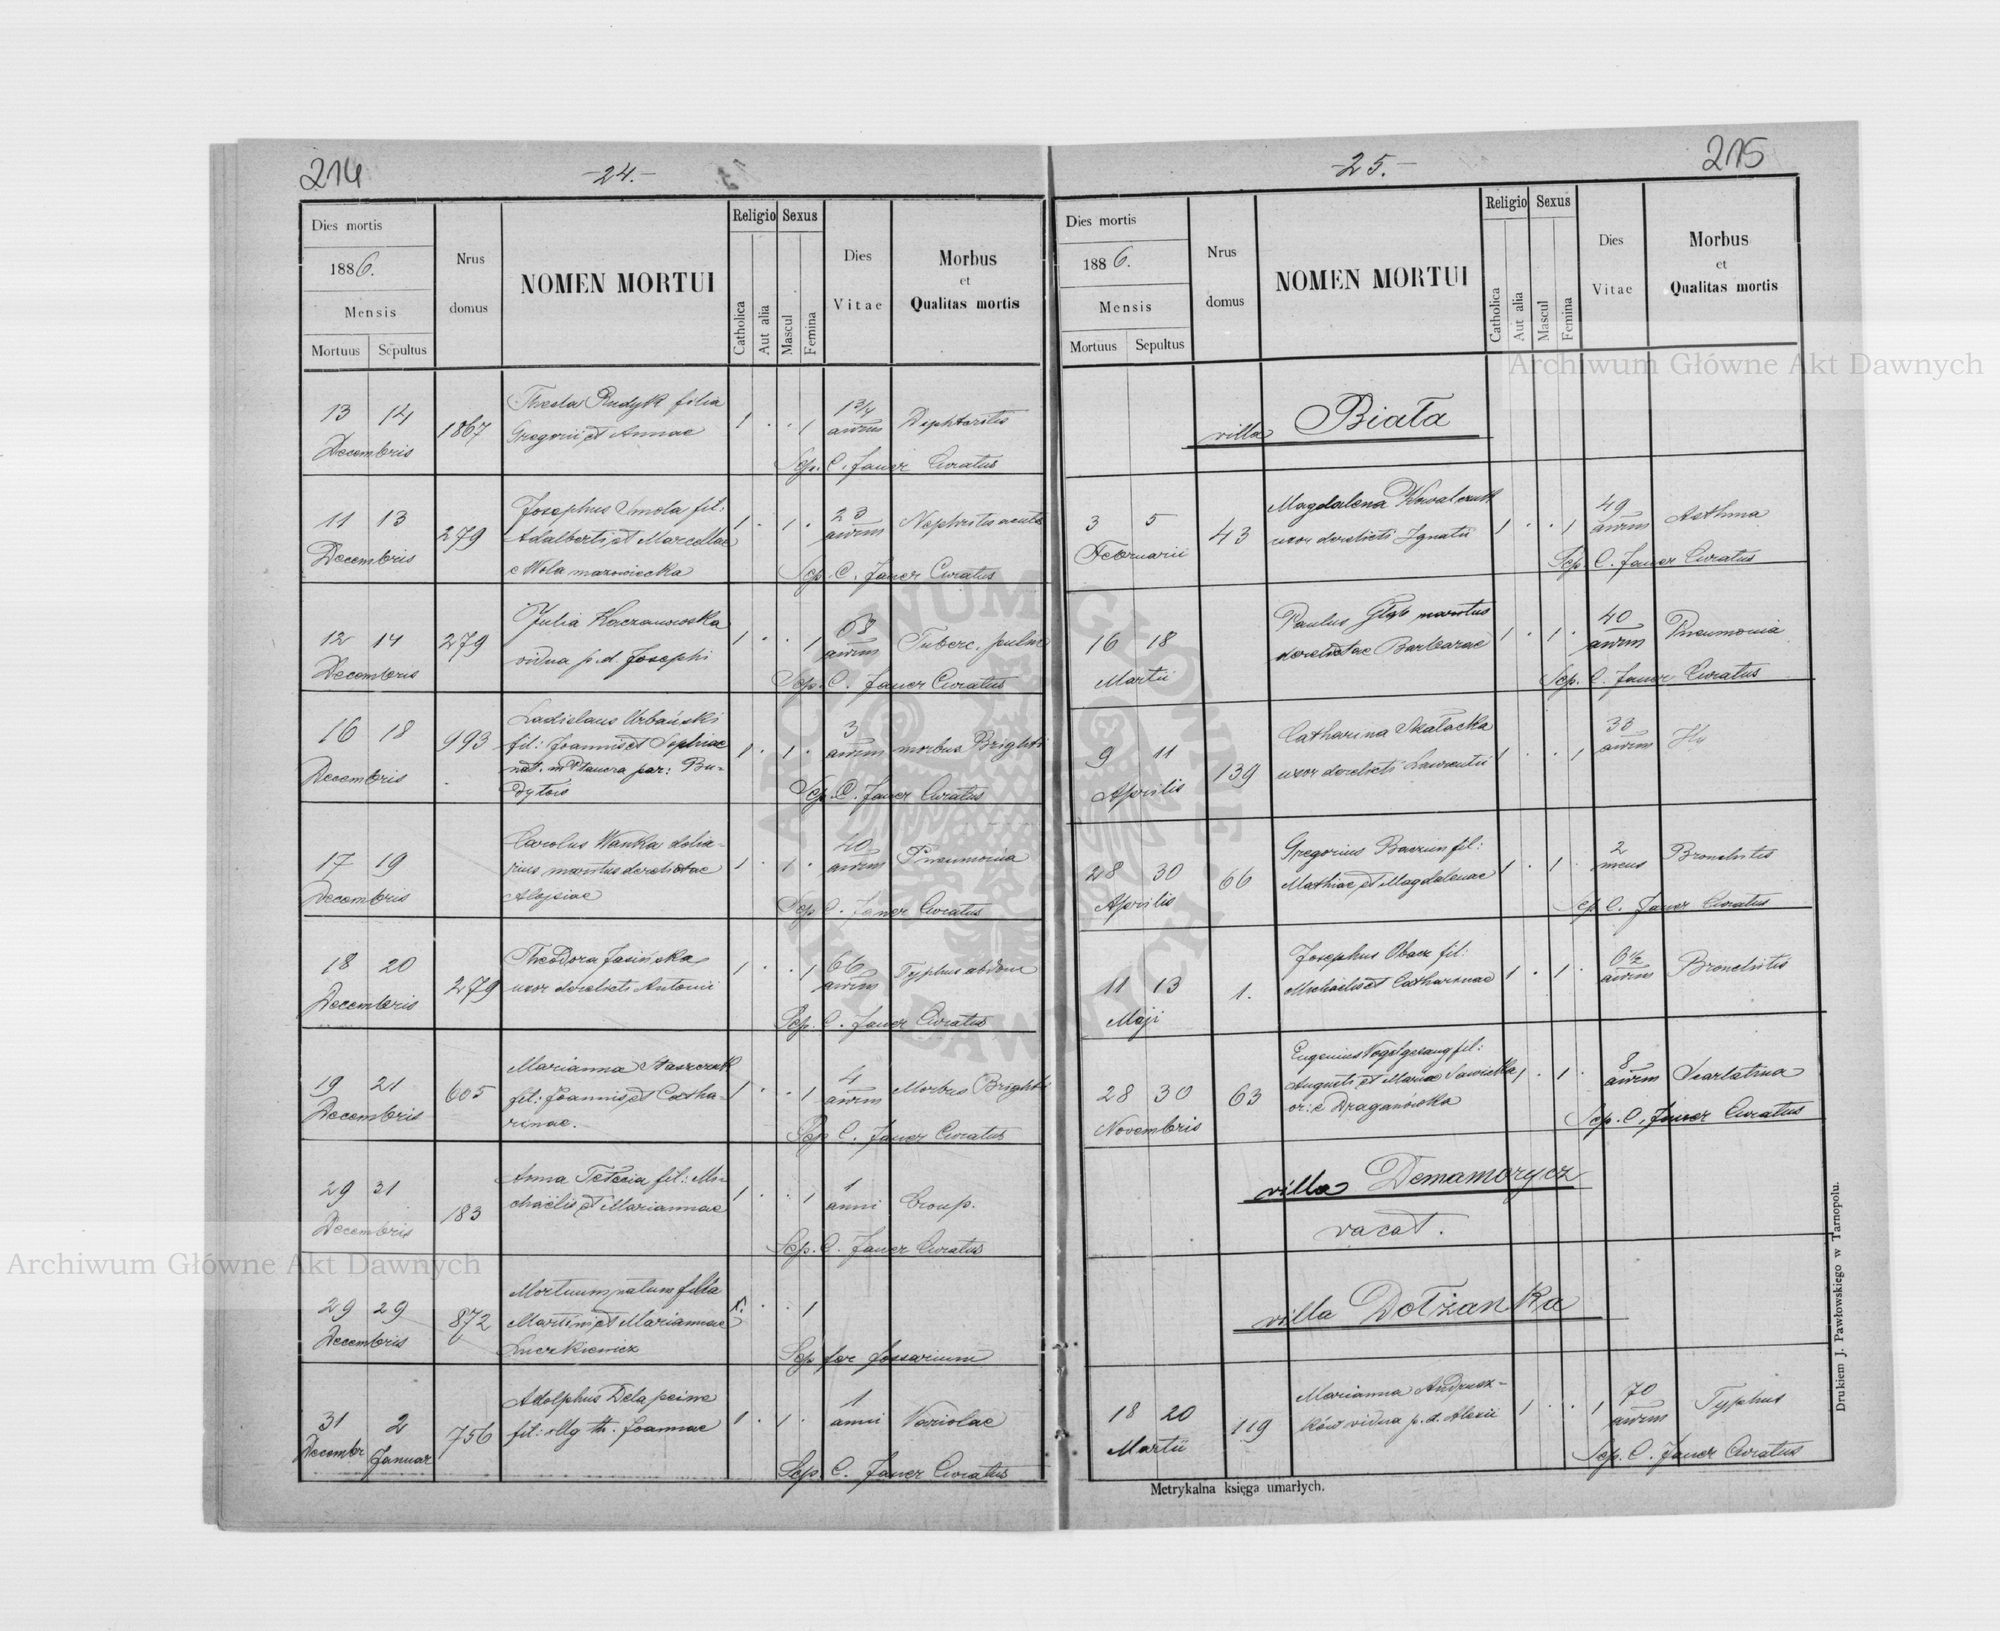 214
-24.-
Dies mortis
1886.
Mensis
Mortuus Sepultus
Nrus domus
NOMEN MORTUI
Religio
Catholica
Aut alia
Sexus
Mascul
Femina
Dies Vitae
Morbus
et
Qualitas mortis
13 14
Decembris
1867
Thecla Rudyk filia
Gregorii et Annae
1 . . 1
1 3/4
annm
Diphtaritis
Sep. C. Jauer Curatus
11 13
Decembris
279
Josephus Smola fil:
Adalberti et Marcellae
e Wola mazowiecka
1 . 1 .
23
annm
Nephritis acuta
Sep. C. Jauer Curatus
12 14
Decembris
279
Julia Kaczanowska
vidua p. d. Josephi
1 . . 1
63
annm
Tuberc. pulm
Sep. C. Jauer Curatus
16 18
Decembris
993
Ladislaus Urbański
fil: Joannis et Sophiae
nat. in par: Bu-
dylow
1 . 1 .
3
annm
morbus Brighti
Sep. C. Jauer Curatus
17 19
Decembris
Carolus Wanka dolia-
rius, maritus derelictae
Alojsiae
1 . 1 .
40
annm
Pneumonia
Sep. C. Jauer Curatus
18 20
Decembris
279
Theodora Jasińska
uxor derelicti Antonii
1 . . 1
66
annm
Typhus abdom
Sep. C. Jauer Curatus
19 21
Decembris
605
Marianna
fil: Joannis et Catha-
rinae.
1 . . 1
4
annm
Morbus Brighti
Sep C. Jauer Curatus
29 31
Decembris
183
Anna fil: Mi-
chaëlis et Mariannae
1 . . 1
1
anni
Croup.
Sep. C. Jauer Curatus
29 29
Decembris
872
Mortuum natum filia
Martini et Mariannae
Luczkiewicz
1. . . 1
Sep per fossarium
31 2
Decembr Januar
756
Adolphus
fil: illg th. Joannae
1 . 1 .
1
anni
Variolae
Sep. C. Jauer Curatus
215
-25.-
Dies mortis
1886.
Mensis
Mortuus Sepultus
Nrus domus
NOMEN MORTUI
Religio
Catholica
Aut alia
Sexus
Mascul
Femina
Dies Vitae
Morbus
et
Qualitas mortis
villa Biała
3 5
Februarii
43
Magdalena Kowalczuk
uxor derelicti Ignatii
1 . . 1
49
annm
Asthma
Sep. C. Jauer Curatus
16 18
Martii
Paulus Głąb maritus
derelictae Barbarae
1 . 1 .
40
annm
Pneumonia
Sep. C. Jauer Curatus
9 11
Aprilis
139
Catharina Skałacka
uxor derelicti Laurentii
1 . . 1
33
annm
28 30
Aprilis
66
Gregorius fil:
Mathiae et Magdalenae
1 . 1 .
2
mens
Bronchitis
Sep C. Jauer Curatus
11 13
Maji
1.
Josephus fil:
Michaëlis et Catharinae
1 . 1 .
6 1/2
annm
Bronchitis
28 30
Novembris
63
Eugenius Vogelgesang fil:
Augusti et Maria Sawicka,
or: e Draganówka
1 . 1 .
8
annm
Scarlatina
Sep. C. Jauer Curatus
villa Demamorycz
vacat.
villa Dołżanka
18 20
Martii
119
Marianna Andrusz-
ków vidua p. d. Alexii
1 . . 1
70
annm
Typhus
Sep. C. Jauer Curatus
Metrykalna księga umarłych.
Drukiem J. Pawłowskiego w Tarnopolu.
Archiwum Główne Akt Dawnych
Archiwum Główne Akt Dawnych